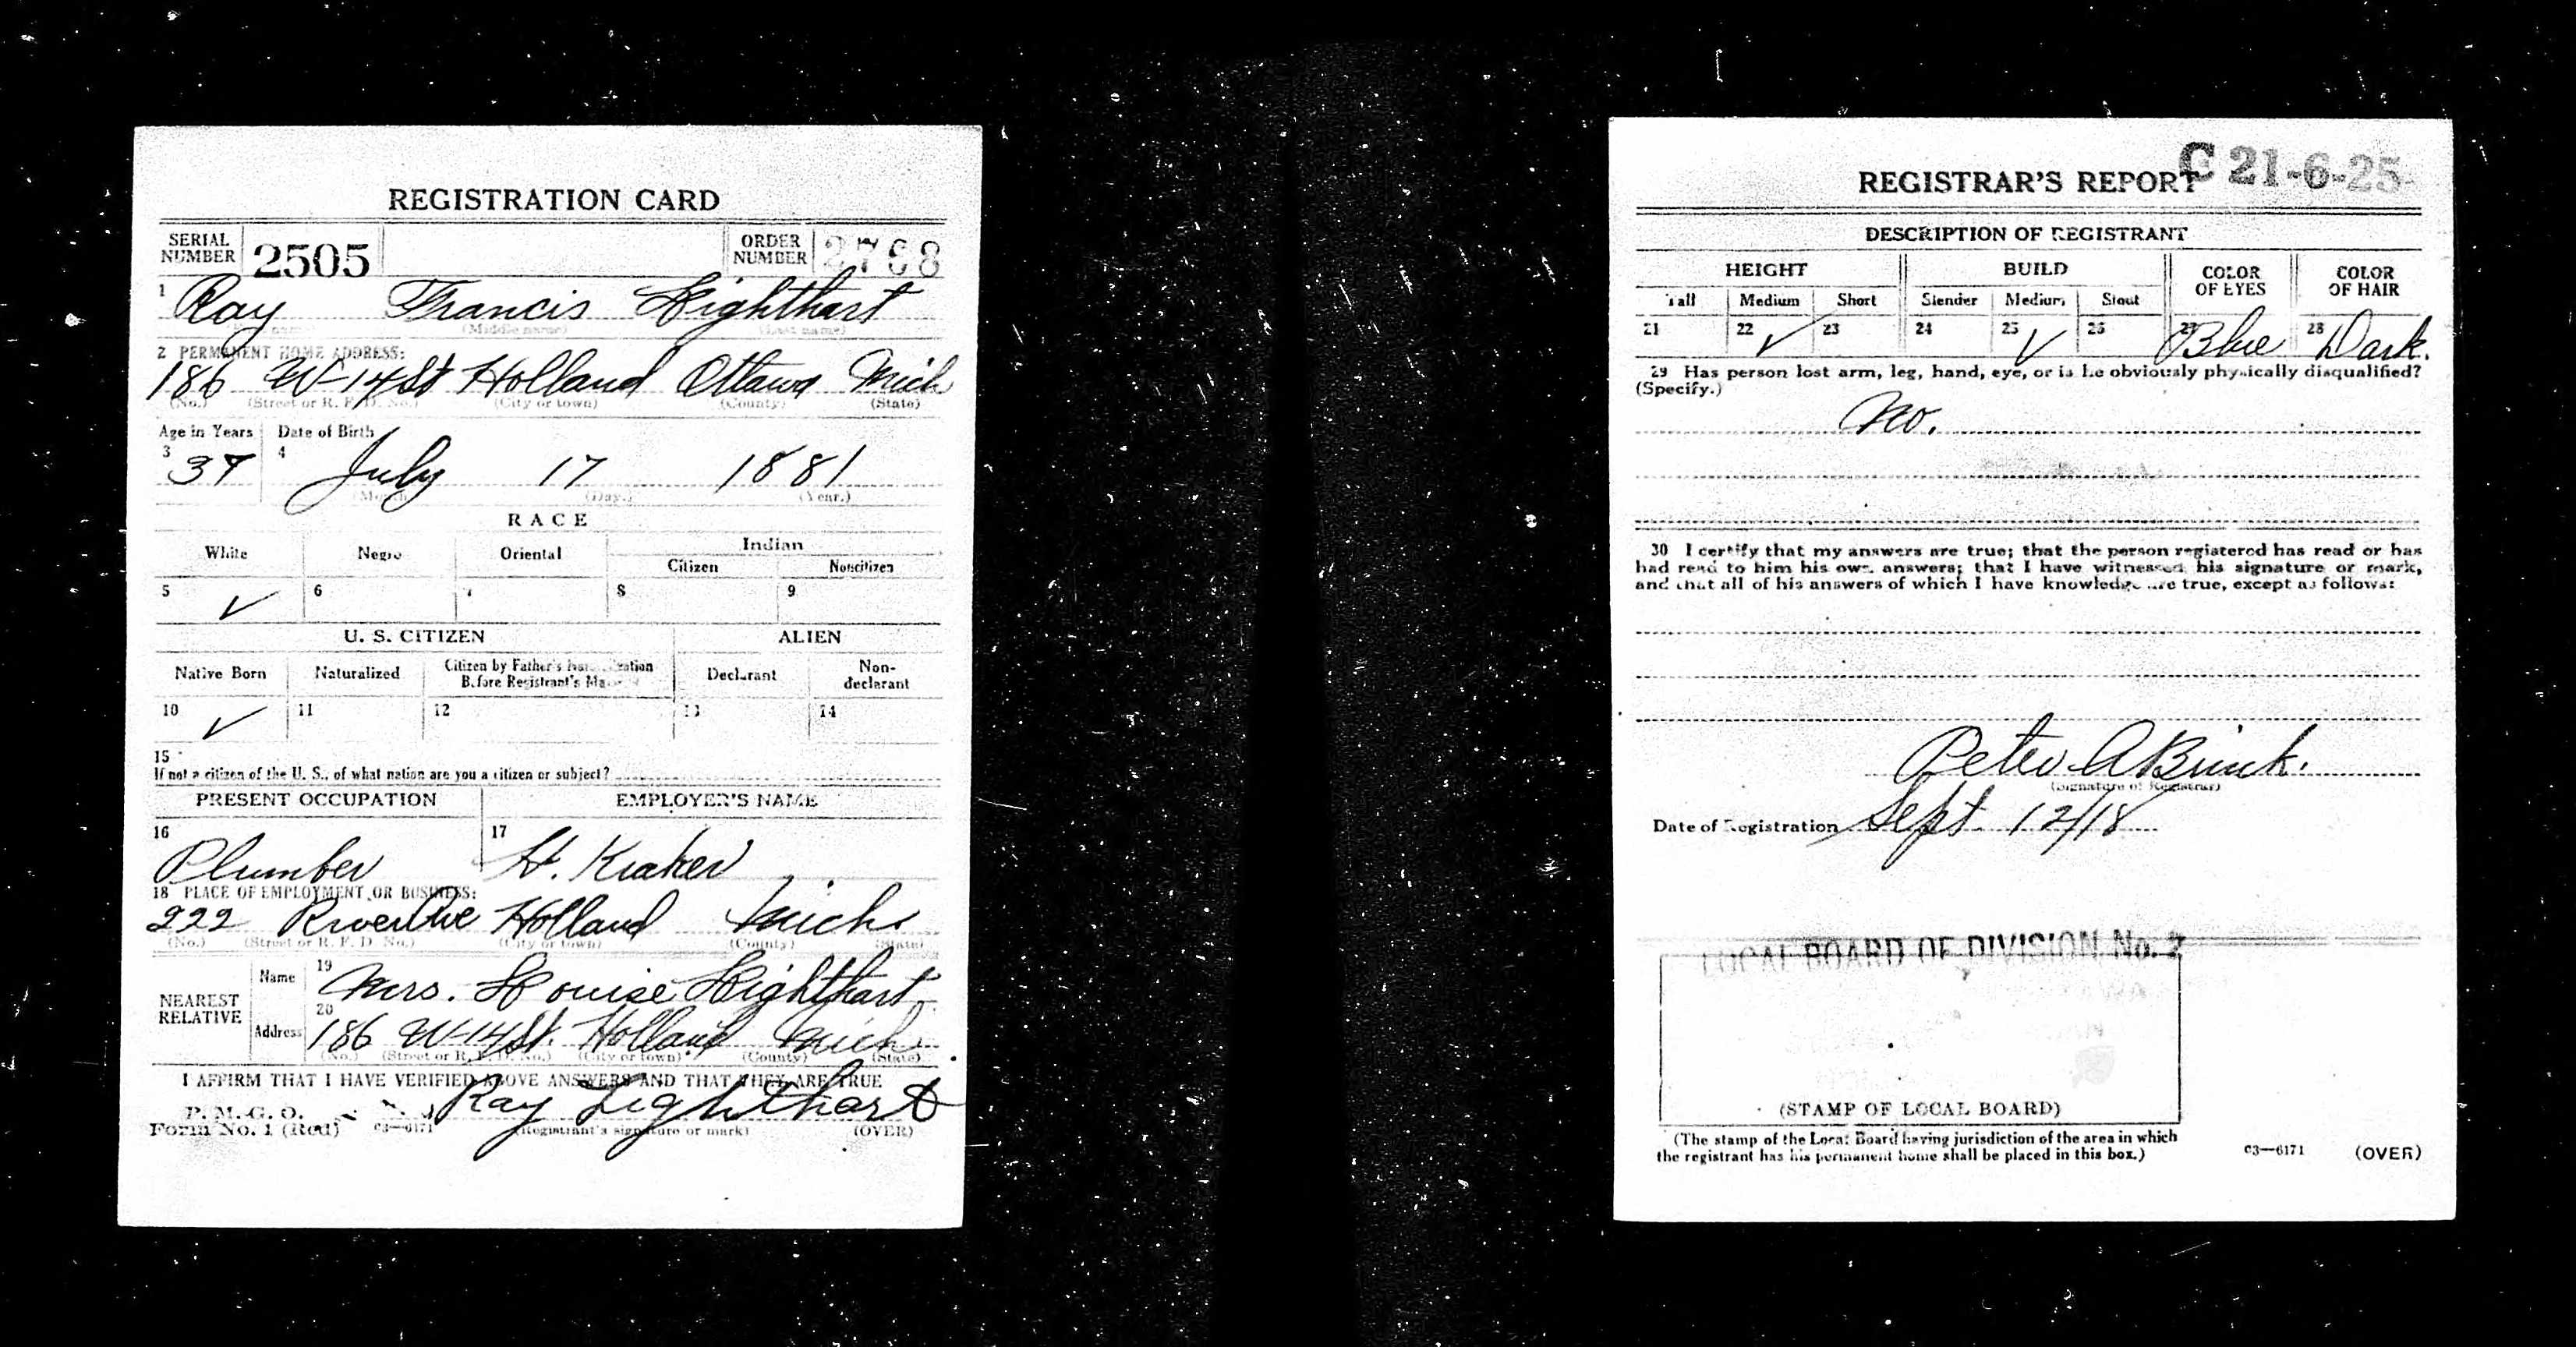 REGISTRATION CARD
SERIAL NUMBER 2505 ORDER NUMBER 2768
1 Ray Francis Lighthart
(Middle name) (Last name)
2 PERMANENT HOME ADDRESS:
186 W-14 St Holland Ottawa Mich
(No.) (Street or R. F. D. No.) (City or town) (County) (State)
Age in Years Date of Birth
3 37 4 July 17 1881
(Month) (Day.) (Year.)
RACE
White Negro Oriental Indian
Citizen Noncitizen
5 ✓ 6 7 8 9
U. S. CITIZEN ALIEN
Native Born Naturalized Citizen by Father's Before Registrant's Declarant Non-declarant
10 ✓ 11 12 13 14
15
If not a citizen of the U. S., of what nation are you a citizen or subject?
PRESENT OCCUPATION EMPLOYER'S NAME
16 Plumber 17 H. Kraker
18 PLACE OF EMPLOYMENT OR BUSINESS:
222 River Ave Holland Mich
(No.) (Street or R. F. D. No.) (City or town) (County) (State)
NEAREST RELATIVE Name 19 Mrs. Louise Lighthart
Address 20 186 W-14 St. Holland Mich
(No.) (Street or R. F. D. No.) (City or town) (County) (State)
I AFFIRM THAT I HAVE VERIFIED ABOVE ANSWERS AND THAT THEY ARE TRUE
P. M. G. O.
Form No. 1 (Red) c3—6171 Ray Lighthart
(Registrant's signature or mark) (OVER)
REGISTRAR'S REPORT C 21-6-25-
DESCRIPTION OF REGISTRANT
HEIGHT BUILD COLOR OF EYES COLOR OF HAIR
Tall Medium Short Slender Medium Stout
21 22 ✓ 23 24 25 ✓ 26 27 Blue 28 Dark.
29 Has person lost arm, leg, hand, eye, or is he obviously physically disqualified?
(Specify.)
No.
30 I certify that my answers are true; that the person registered has read or has
had read to him his own answers; that I have witnessed his signature or mark,
and that all of his answers of which I have knowledge are true, except as follows:
Peter A Brink.
(Signature of Registrar)
Date of Registration Sept 12/18
LOCAL BOARD OF DIVISION No. 2
(STAMP OF LOCAL BOARD)
(The stamp of the Local Board having jurisdiction of the area in which
the registrant has his permanent home shall be placed in this box.)
c3—6171 (OVER)